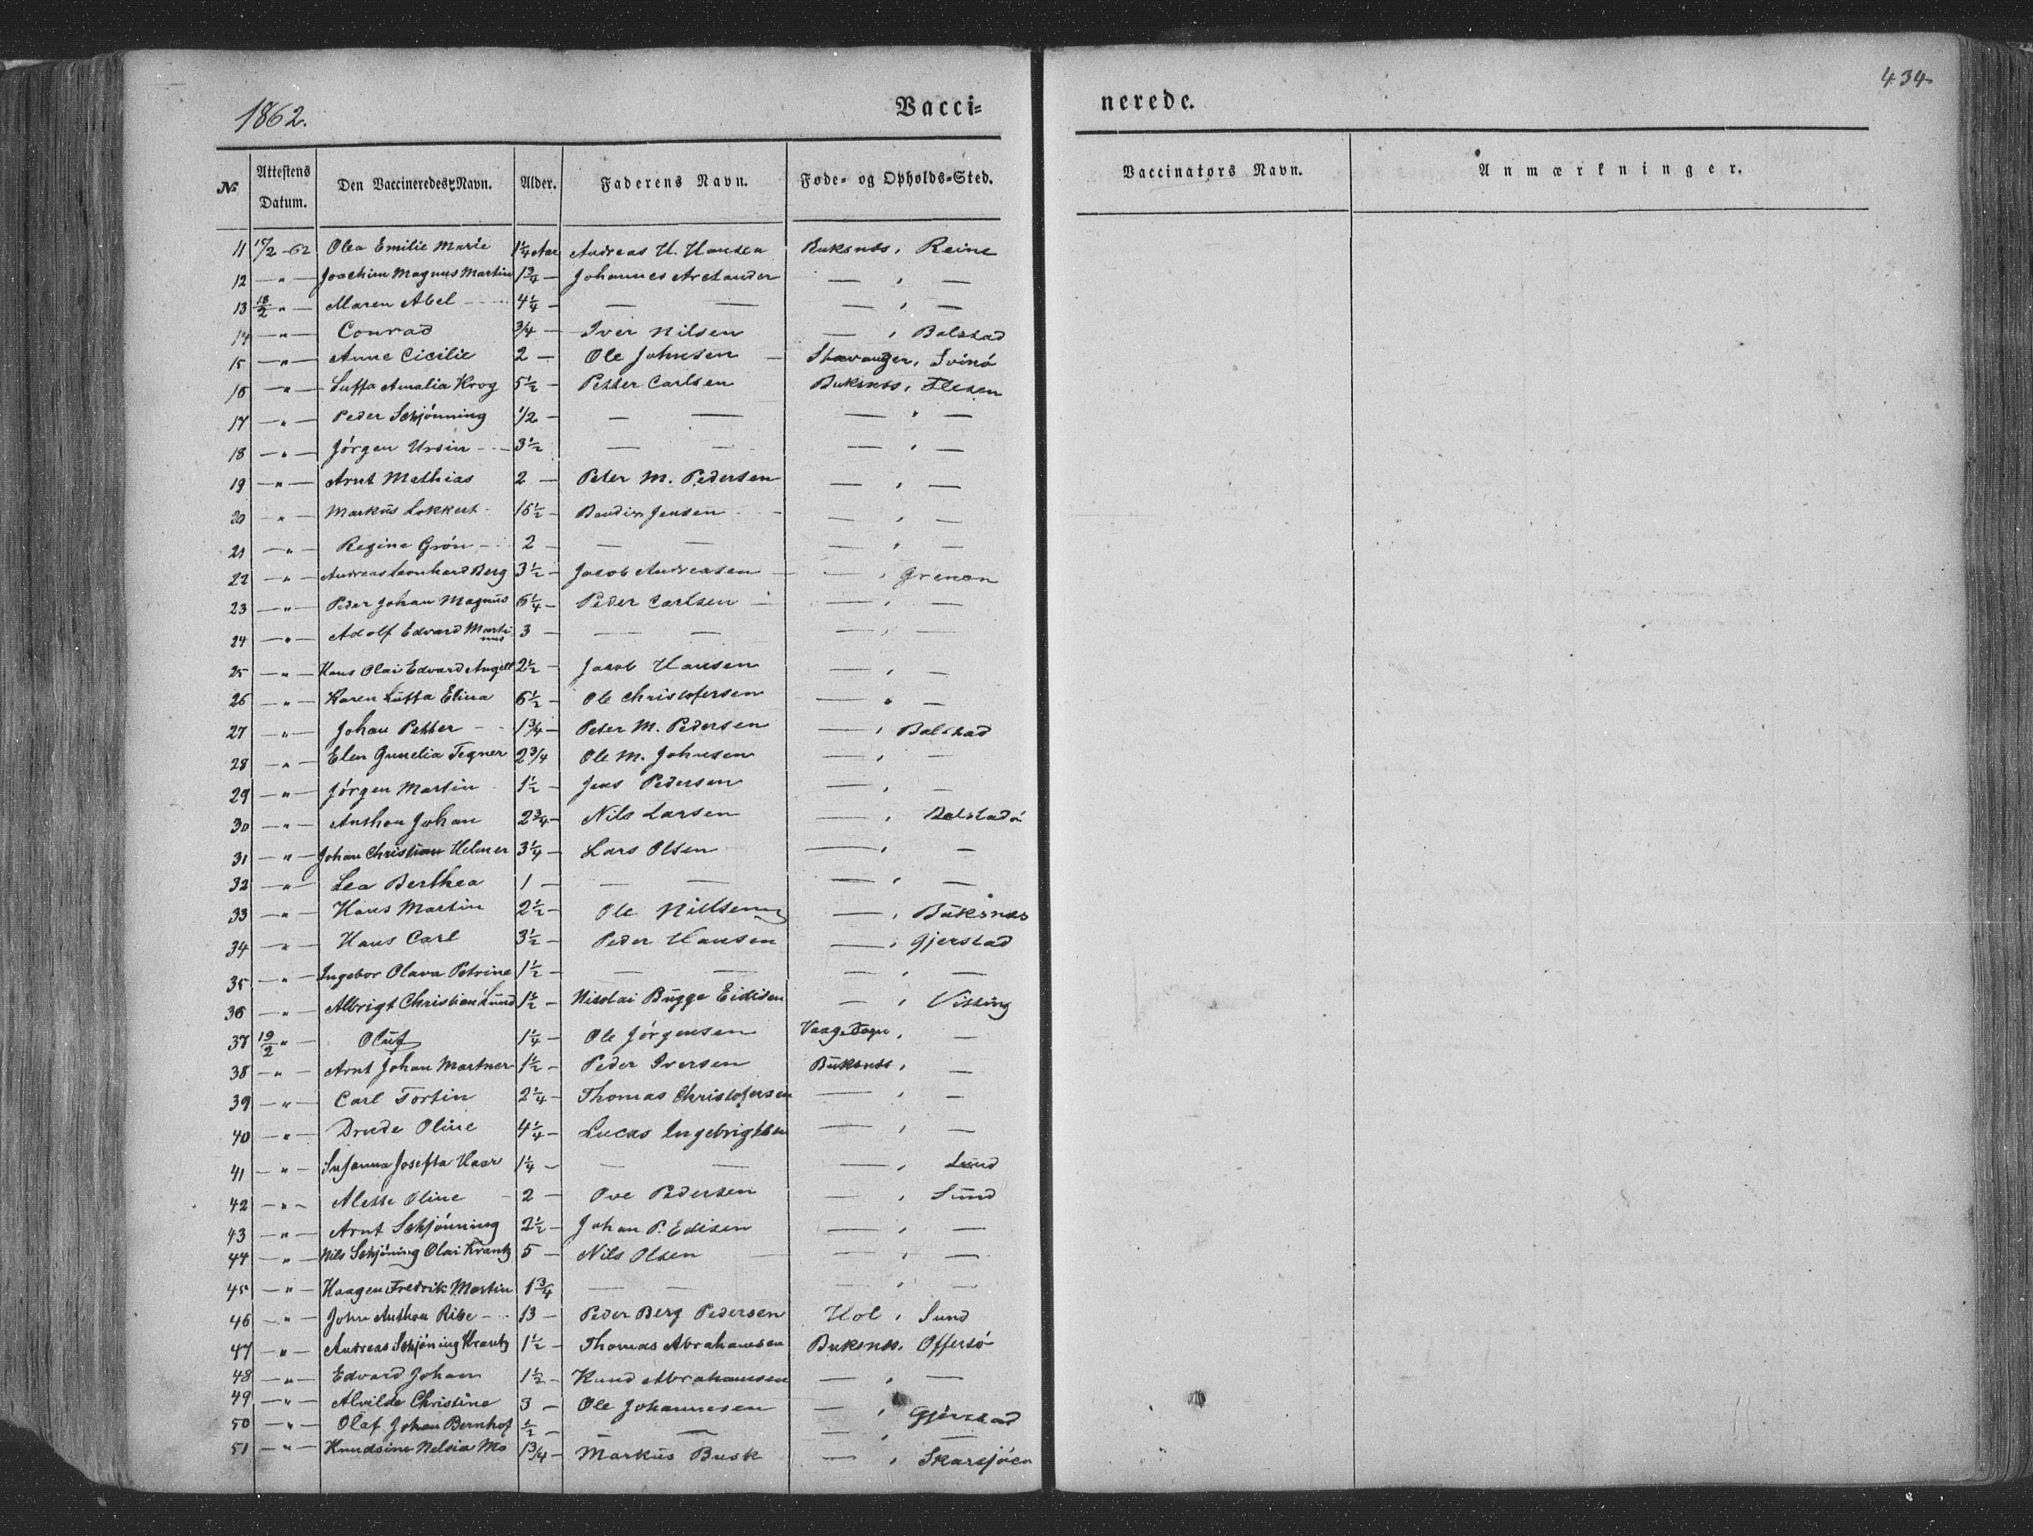 434
1862. Vacci= nerede.
№ Attestens Datum. Den Vaccineredes Navn. Alder. Faderens Navn. Føde- og Opholds-Sted. Vaccinators Navn. Anmærkninger.
11 17/2 -62 Olea Emilie Marie 1 1/4 Aar Andreas H. Hansen Buksnæs, Reine
12 — " — Joachim Magnus Martin 1 3/4 — Johannes Arctander — , —
13 18/2 " — Maren Abel 4 1/4 — — — — , —
14 — " — Conrad 3/4 — Iver Nilsen — , Balstad
15 — " — Anne Cicilie 2 — Ole Johnsen — Stavanger, Svinø
16 — " — Luffa Amalia Krog 5 1/2 — Petter Carlsen Buksnæs, Flesen
17 — " — Peder Schjønning 1/2 — — — — " —
18 — " — Jørgen Ursin 3 1/2 — — — , —
19 — " — Arnt Mathias 2 — Peter M. Pedersen — , —
20 — " Markus Lokkert 16 1/2 — Jensen — , —
21 — " — Regine Grøn 2 — — — — " —
22 — " — Andreas Leonhard Berg 3 1/2 — Jacob Andreasen — — , Grenen
23 — " — Peder Johan Magnus 6 1/4 — Peder Carlsen — , —
24 — " — Adolf Edvard Martinus 3 — — — — , —
25 — " — Hans Olai Edvard Angell 2 1/2 — Jacob Hansen — , —
26 — " — Karen Luffa Elina 6 1/2 — Ole Christofersen — " —
27 — " — Johan Petter 1 3/4 — Peter M. Pedersen — , Balstad
28 — " — Elen Gunelia Tegner 2 3/4 Ole M. Johnsen — , —
29 — " — Jørgen Martin 1 1/2 — Jens Pedersen — , —
30 — " — Anthon Johan 2 3/4 — Nils Larsen — , Balstadø
31 — " — Johan Christian Helmer 3 1/4 — Lars Olsen — , —
32 — " — Lea Berthea 1 — — — — , —
33 — " — Hans Martin 2 1/2 — Ole Nillsen — , Buksnæs
34 " — Hans Carl 3 1/2 — Peder Hansen — , Gjerstad
35 — " — Ingebor Olava Petrine 1 1/2 — — — — , —
36 — " — Albrigt Christian Lund 1 1/2 — Nicolai Bugge Eidisen — , Visting
37 19/2 " — Oluf 1 1/4 — Ole Jørgensen Vaage Sogn, —
38 — " — Arnt Johan Martner 1 1/2 — Peder Iversen Buksnæs, —
39 — " — Carl Tortin 2 1/4 — Thomas Christofersen — , —
40 — " — Drude Oline 4 1/4 — Lucas Ingebrigtsen — , —
41 — " — Susanna Josefta Haar 1 1/4 — — — — , Lund
42 — " — Alette Oline 2 — Ove Pedersen — , Sund
43 — " — Arnt Schjønning 2 1/2 — Johan P. Edisen — , —
44 — " — Nils Schjøning Olai Krantz 5 — Nils Olsen — , —
45 — " — Haagen Fredrik Martin 1 3/4 — — — , —
46 — " — John Anthon Ribe 13 — Peder Berg Pedersen Hol, Sund
47 — " — Andreas Schjøning Krantz 1 1/2 — Thomas Abrahamsen Buksnæs, Offersø
48 — " — Edvard Johan 1 1/2 — Knud Abrahamsen — , —
49 — " — Alvilde Christine 3 — Ole Johannesen — , Gjerstad
50 — " — Olaf Johan Bernhof 1/2 — — — , —
51 — " — Knudsine Nelsia Mo 1 3/4 — Markus Busk — , Skarsjøen